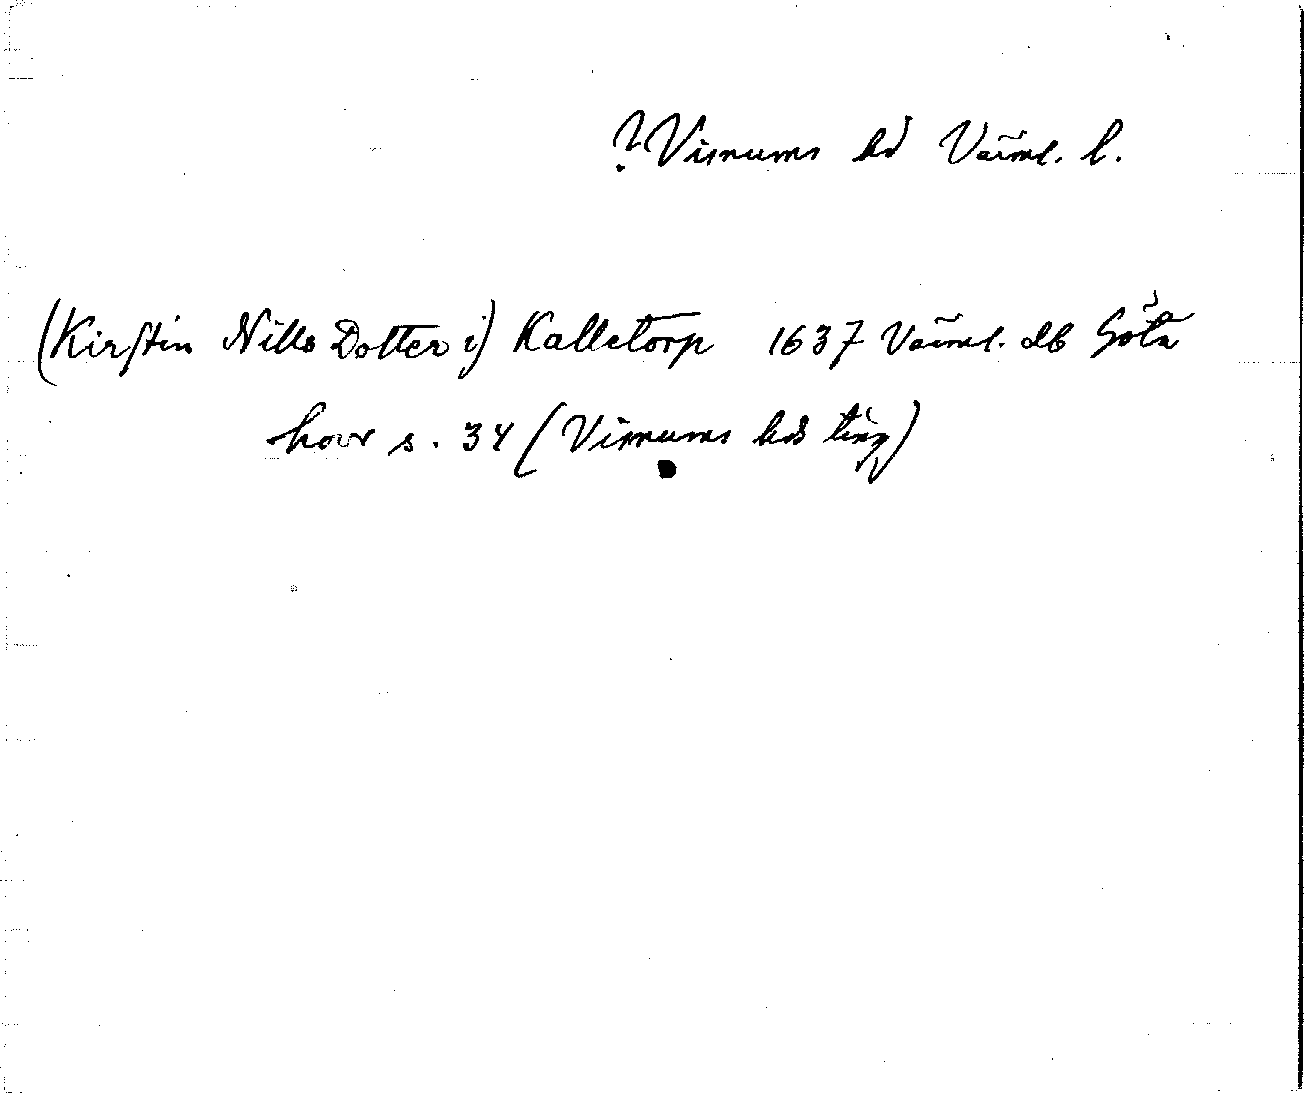 ? Visnums hd Värml. l.
(Kirstin Nills Dotter i) Kalletorp 1637 Värml. db Göta
hovr s. 34 (Visnums hds ting)